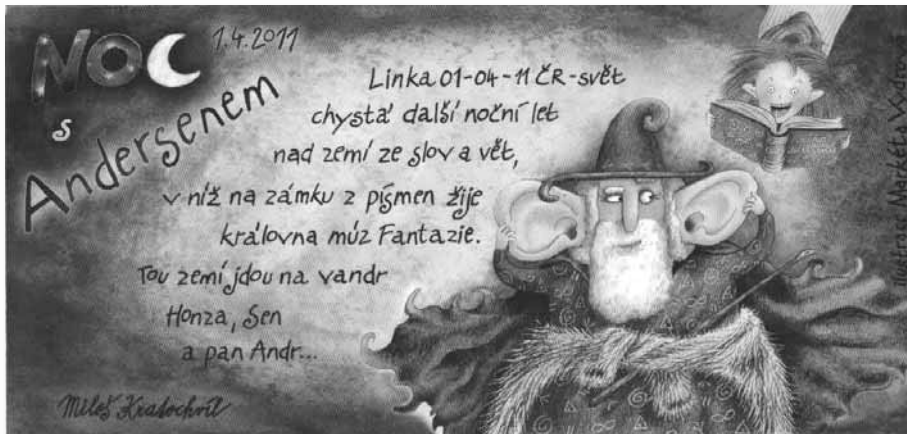 NOC 1.4.2011
s
Andersenem
Linka 01-04-11 ČR-svět
chystá další noční let
nad zemí ze slov a vět,
v níž na zámku z písmen žije
královna múz Fantazie.
Tou zemí jdou na vandr
Honza, Sen
a pan Andr...
Miloš Kratochvíl
Markéta Vydrová